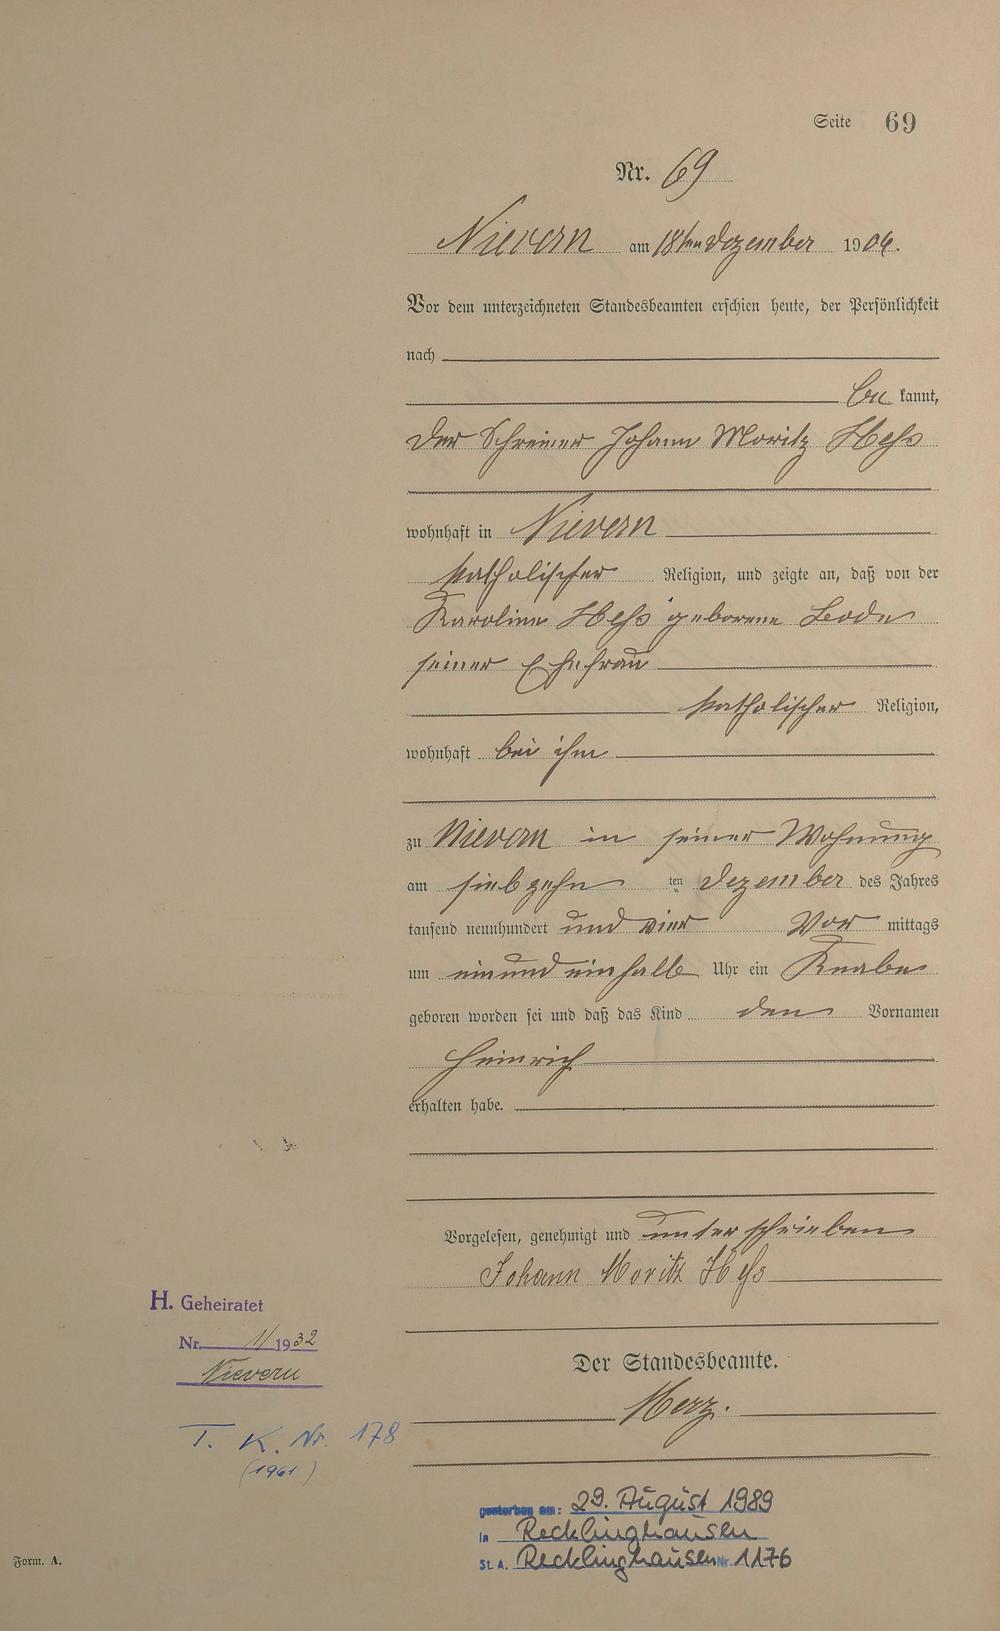 Seite 69
Nr. 69
Nievern am 18ten Dezember 1904.
Vor dem unterzeichneten Standesbeamten erschien heute, der Persönlichkeit
nach
be kannt,
der Schreiner Johann Moritz Heß
wohnhaft in Nievern
katholischer Religion, und zeigte an, daß von der
Karoline Heß geborene Bode
seiner Ehefrau
katholischer Religion,
wohnhaft bei ihm
zu Nievern in seiner Wohnung
am siebzehn ten Dezember des Jahres
tausend neunhundert und vier Vor mittags
um ein und ein halb Uhr ein Knabe
geboren worden sei und daß das Kind den Vornamen
Heinrich
erhalten habe.
Vorgelesen, genehmigt und unterschrieben
Johann Moritz Heß
H. Geheiratet
Nr. 1/1932
Nievern
Der Standesbeamte.
Merz.
T. K. Nr. 178
(1961)
gestorben am: 29. August 1989
in Recklinghausen
St. A. Recklinghausen Nr. 1176
Form. A.